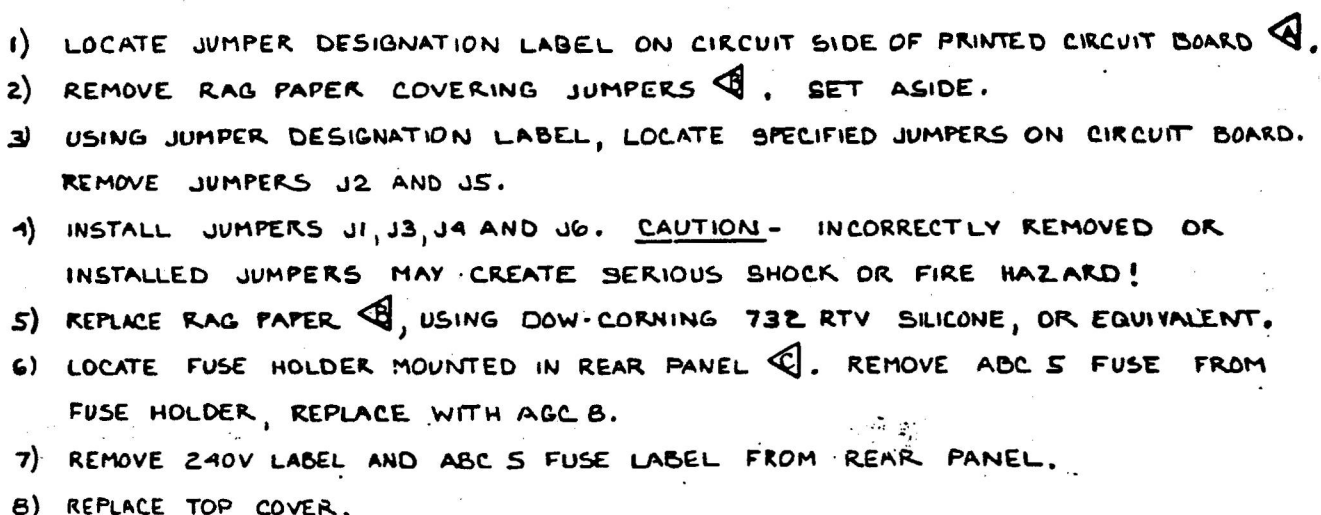 1) LOCATE JUMPER DESIGNATION LABEL ON CIRCUIT SIDE OF PRINTED CIRCUIT BOARD A.
2) REMOVE RAG PAPER COVERING JUMPERS B. SET ASIDE.
3) USING JUMPER DESIGNATION LABEL, LOCATE SPECIFIED JUMPERS ON CIRCUIT BOARD.
REMOVE JUMPERS J2 AND J5.
4) INSTALL JUMPERS J1, J3, J4 AND J6. CAUTION - INCORRECTLY REMOVED OR
INSTALLED JUMPERS MAY CREATE SERIOUS SHOCK OR FIRE HAZARD!
5) REPLACE RAG PAPER B, USING DOW-CORNING 732 RTV SILICONE, OR EQUIVALENT.
6) LOCATE FUSE HOLDER MOUNTED IN REAR PANEL C. REMOVE ABC 5 FUSE FROM
FUSE HOLDER, REPLACE WITH AGC 8.
7) REMOVE 240V LABEL AND ABC 5 FUSE LABEL FROM REAR PANEL.
8) REPLACE TOP COVER.